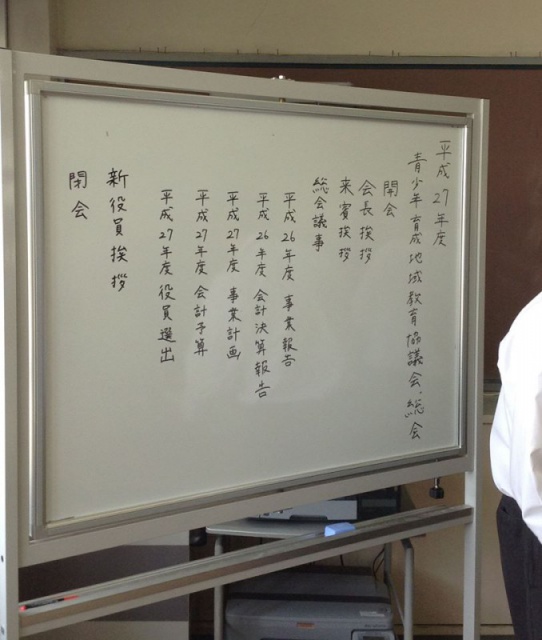 平成27年度
青少年育成地域教育協議会総会
開会
会長挨拶
来賓挨拶
総会議事
平成26年度 事業報告
平成26年度 会計決算報告
平成27年度 事業計画
平成27年度 会計予算
平成27年度 役員選出
新役員挨拶
閉会